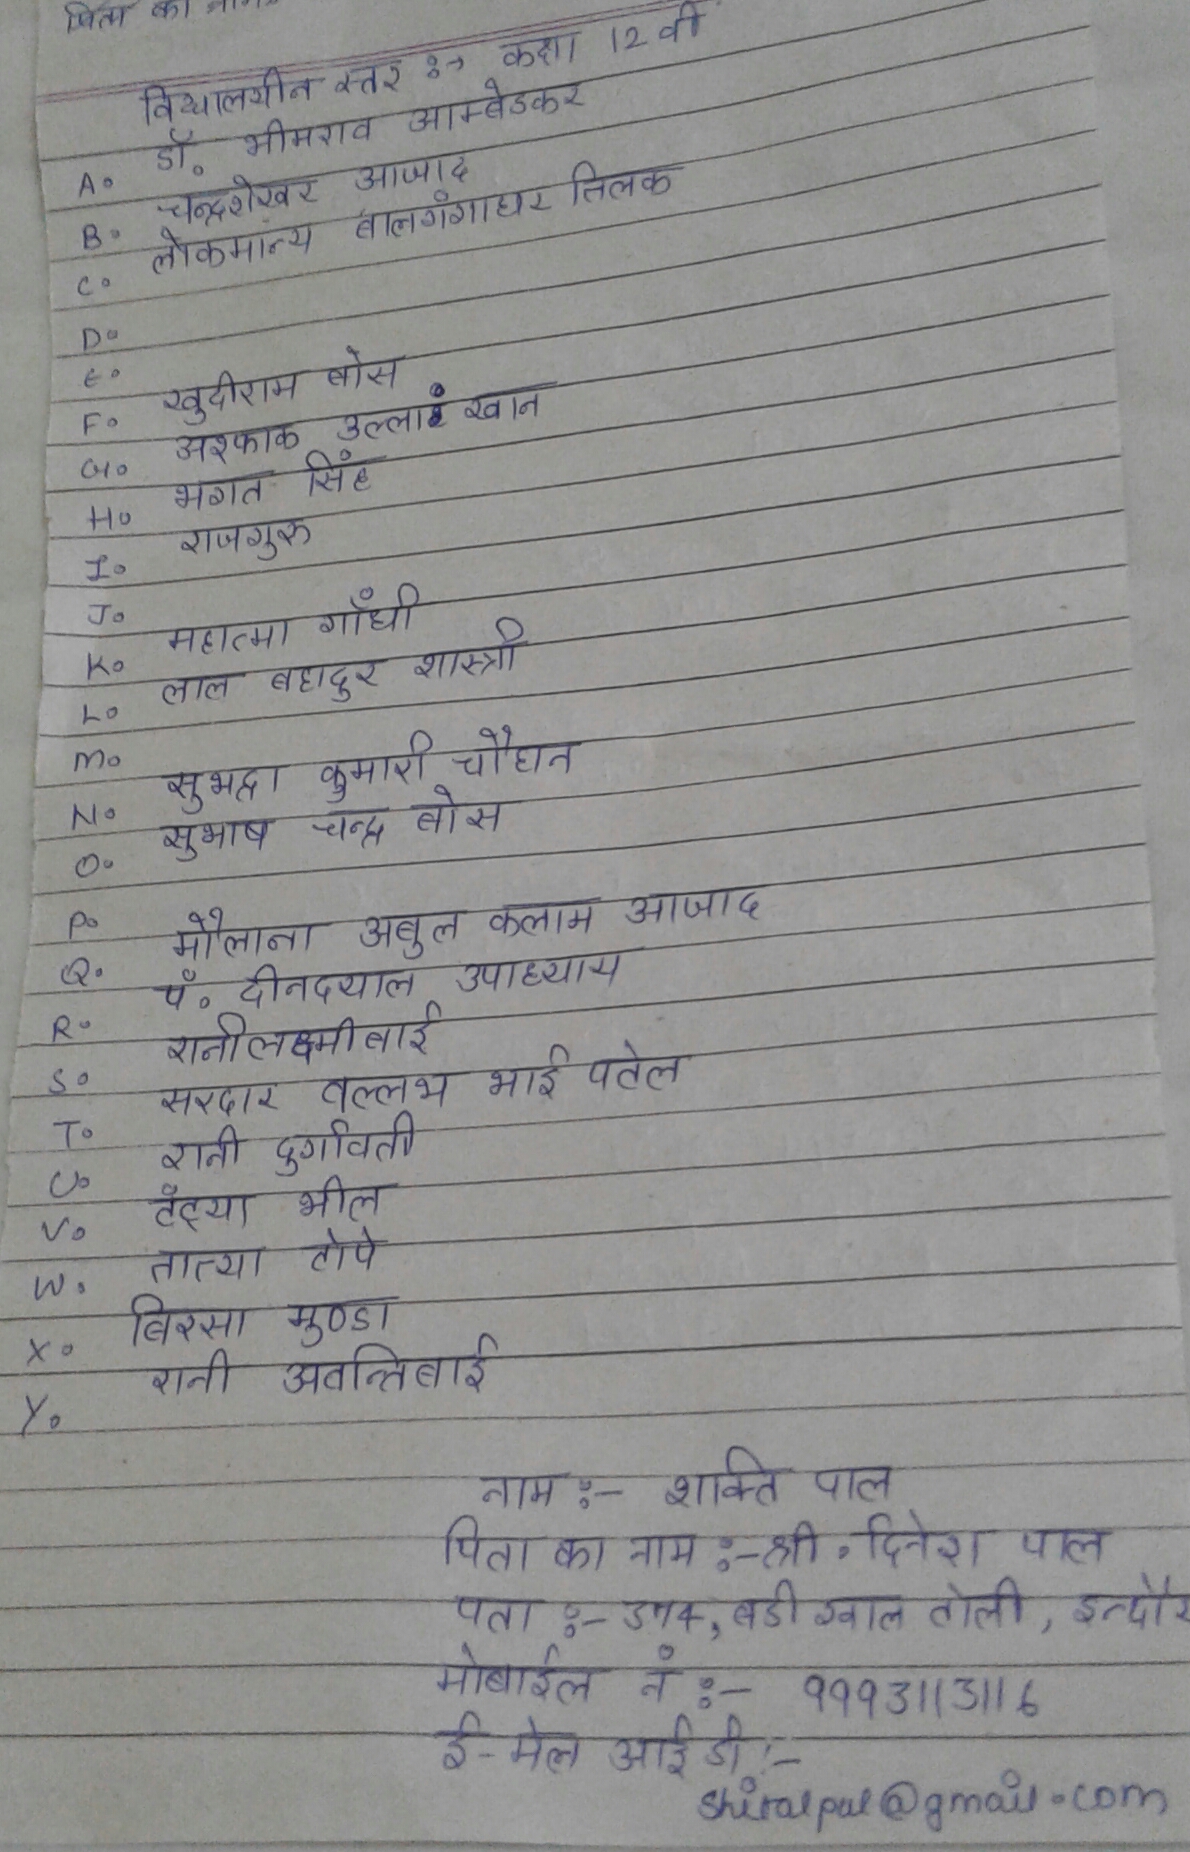 पिता का नाम
विद्यालयीन स्तर :→ कक्षा 12 वी
A. डॉ. भीमराव आम्बेडकर
B. चन्द्रशेखर आजाद
C. लोकमान्य बालगँगाधर तिलक
D.
E.
F. खुदीराम बोस
G. अश्फाक उल्लाह खान
H. भगत सिँह
I. राजगुरु
J.
K. महात्मा गाँधी
L. लाल बहादुर शास्त्री
M.
N. सुभद्रा कुमारी चौहान
O. सुभाष चन्द्र बोस
P.
Q. मौलाना अबुल कलाम आजाद
R. पँ. दीनदयाल उपाध्याय
S. रानीलक्ष्मीबाई
T. सरदार वल्लभ भाई पटेल
U. रानी दुर्गावती
V. टँट्या भील
W. तात्या टोपे
X. बिरसा मुण्डा
Y. रानी अवन्तिबाई
नाम :- शक्ति पाल
पिता का नाम :- श्री. दिनेश पाल
पता :- बडी ग्वाल टोली, इन्दौर
मोबाईल नं :- 9993113116
ई-मेल आई डी :-
@gmail.com